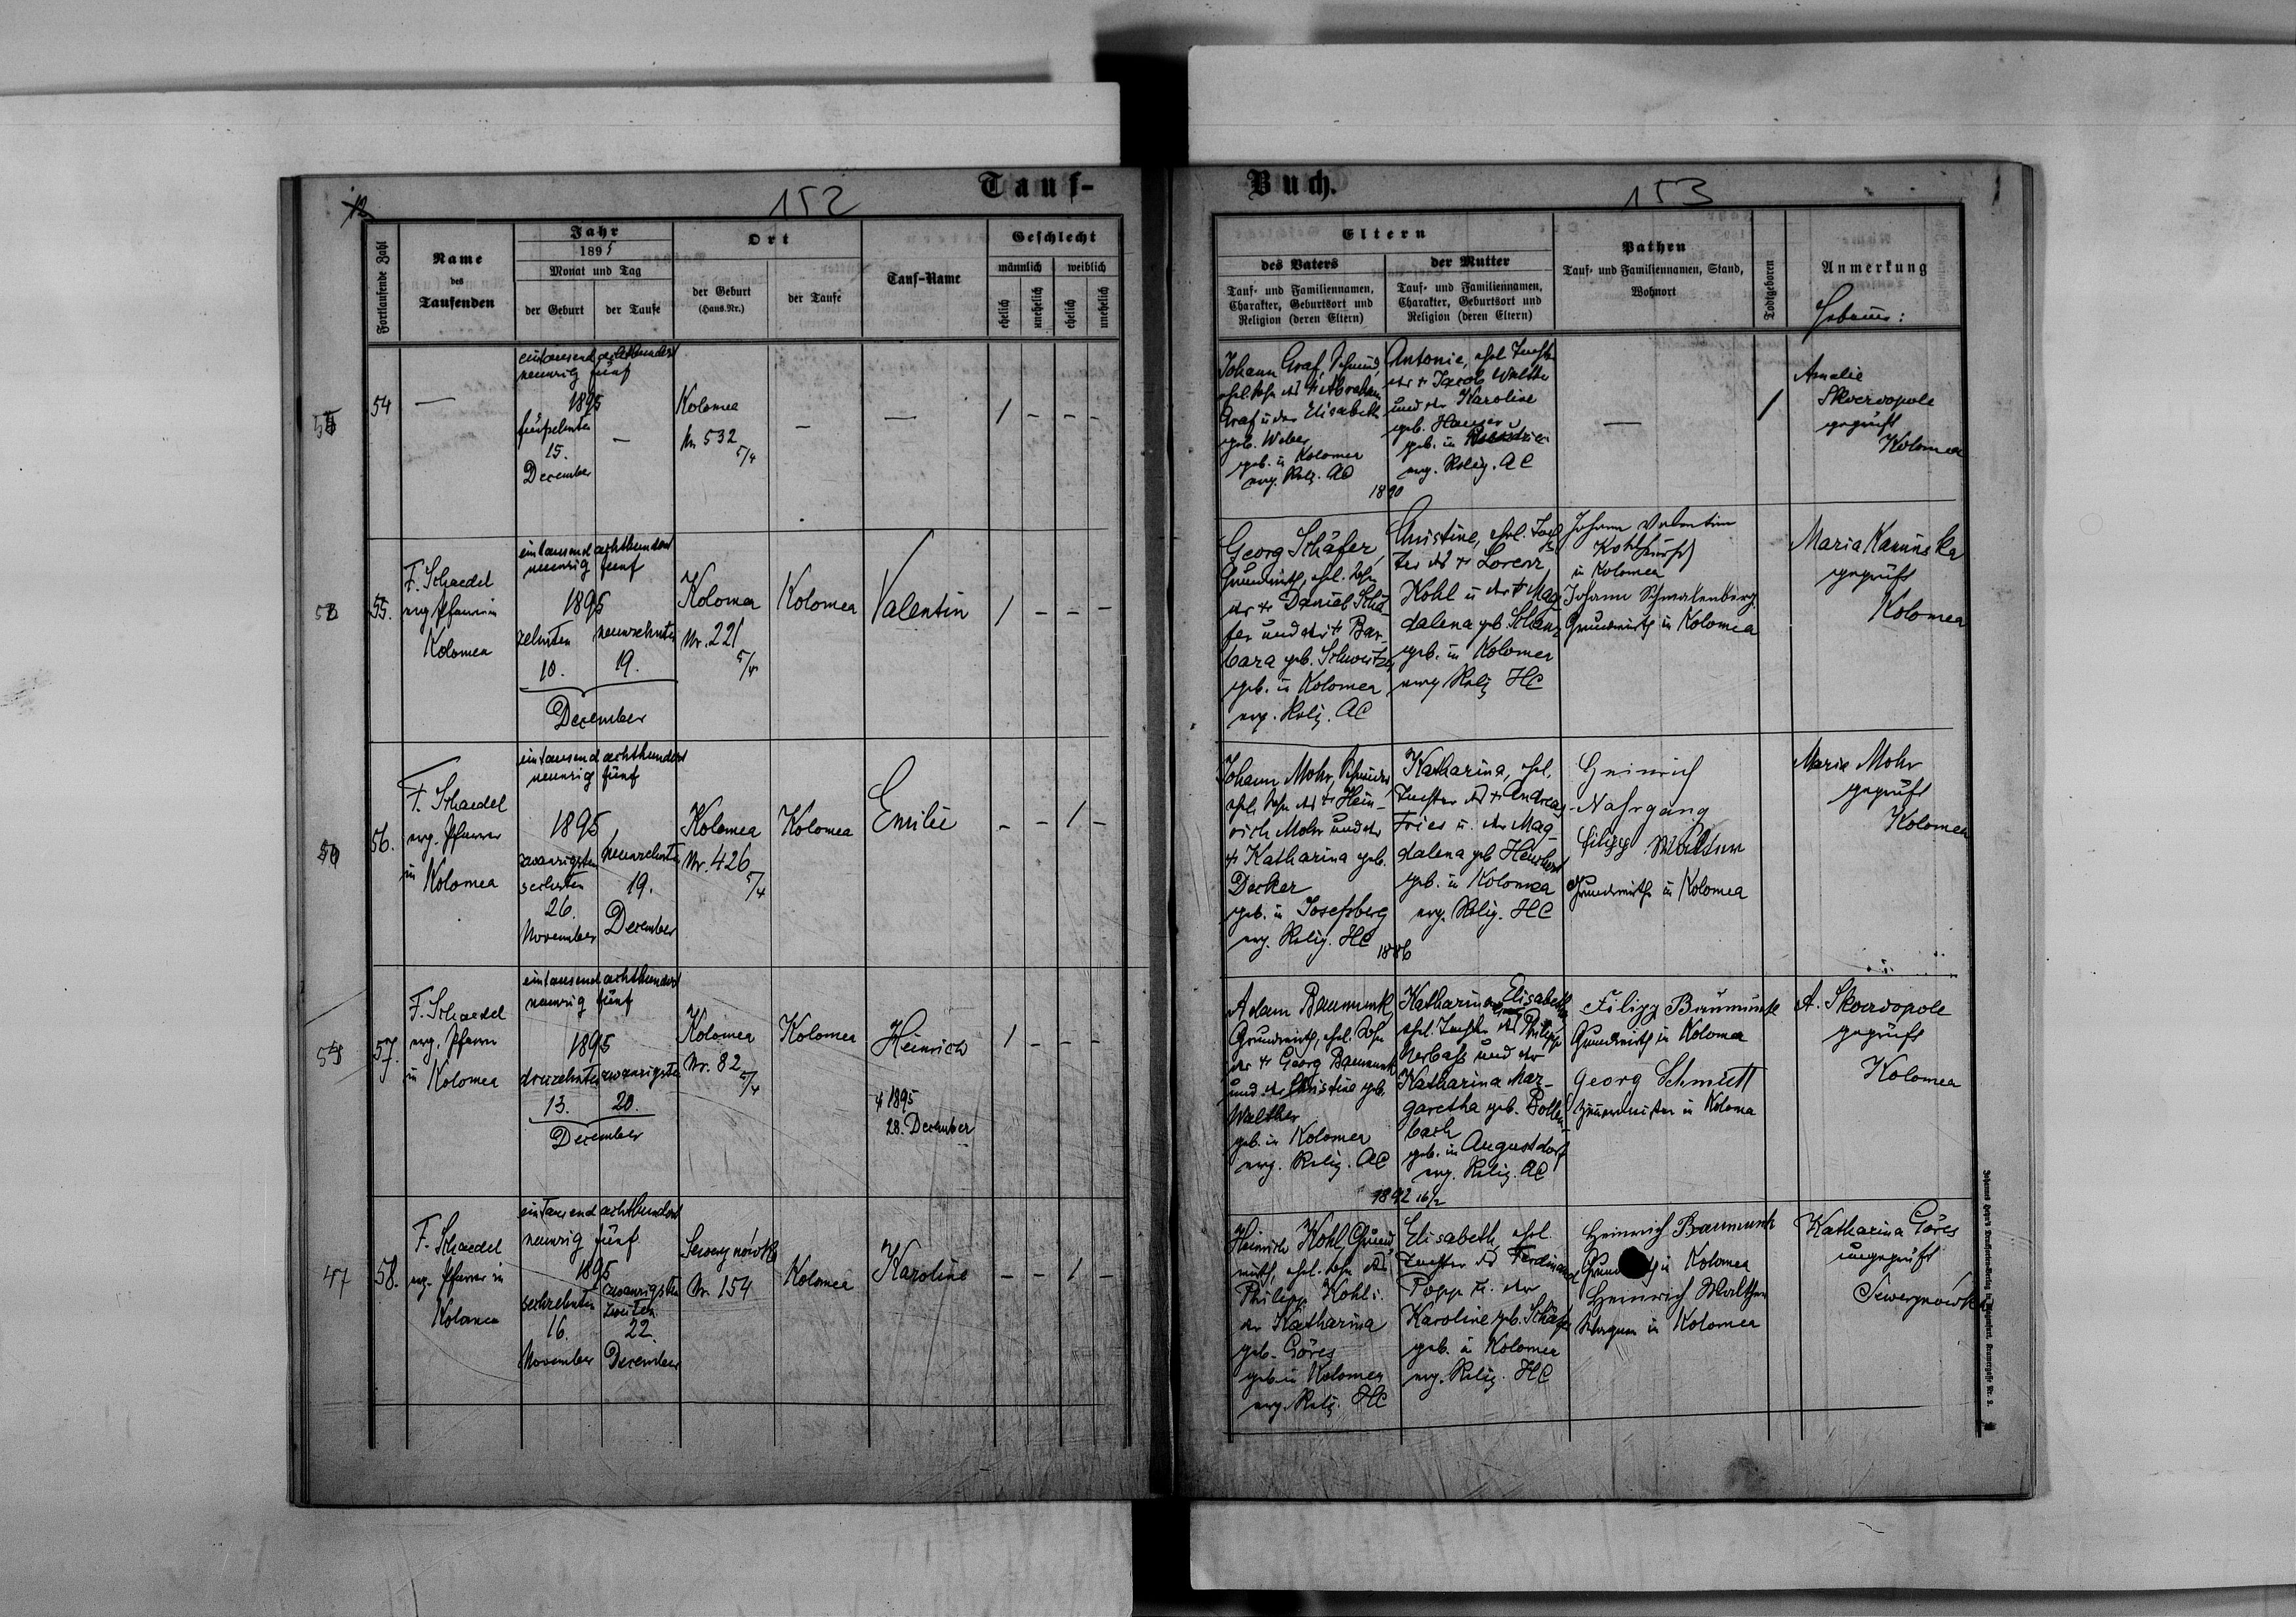 152
Tauf-
Buch.
153
Fortlaufende Zahl
Name
des
Taufenden
Jahr
1895
Monat und Tag
der Geburt
der Taufe
Ort
der Geburt
(Haus-Nr.)
der Taufe
Tauf-Name
Geschlecht
männlich
weiblich
ehelich
unehelich
ehelich
unehelich
Eltern
des Vaters
Tauf- und Familiennamen,
Charakter, Geburtsort und
Religion (deren Eltern)
der Mutter
Tauf- und Familiennamen,
Charakter, Geburtsort und
Religion (deren Eltern)
Pathen
Tauf- und Familiennamen, Stand,
Wohnort
Todtgeboren
Anmerkung
54
—
eintausend achthundert
neunzig fünf
1895
15.
December
—
Kolomea
Nr 532
5/4
—
—
/ - - -
Johann Graf,
Abraham
Graf u der Elisabeth
geb. Weber
geb. in Kolomea
evg. Relig. AC
Antonie, ehel Tochter
des + Jacob Walther
und der Karoline
geb. Hauser
geb. in
evg. Relig. AC
—
/
Amalie
Skoerdopole
geprüft
Kolomea
1890
55.
F. Schaedel
evg Pfarrer in
Kolomea
eintausend achthundert
neunzig fünf
1895
zehnten
10.
neunzehnten
19.
December
Kolomea
Nr. 221
5/4
Kolomea
Valentin
/ - - -
Georg Schäfer,
Grundwirth, ehel. Sohn
des + Daniel Schä
fer und der + Bar-
bara geb. Schweitzer
geb. in Kolomea
evg. Relig. AC
Christine, ehel. Toch
ter des + Lorenz
Kohl u der + Mag
dalena geb
geb. in Kolomea
evg Relig HC
Johann Valentin
in Kolomea
Johann Schmalenberg
Grundwirth in Kolomea
Maria
geprüft
Kolomea
56.
F. Schaedel
evg. Pfarrer
in Kolomea
eintausend achthundert
neunzig fünf
1895
zwanzigsten
sechsten
26.
November
neunzehnten
19.
December
Kolomea
Nr. 426
5/4
Kolomea
Emilie
- - / -
Johann Mohr,
ehel. Sohn des + Hein-
rich Mohr und der
+ Katharina geb.
Decker
geb. in Josefsberg
evg. Relig. HC
Katharina, ehel.
Tochter des + Andreas
Fries u. der Mag-
dalena geb
geb. in Kolomea
evg. Relig. HC
Heinrich
Nahrgang
Filipp Walther
Grundwirthe in Kolomea
Maria Mohr
geprüft
Kolomea
1886
57.
F. Schaedel
evg. Pfarrer
in Kolomea
eintausend achthundert
neunzig fünf
1895
dreizehnten
13.
zwanzigsten
20.
December
Kolomea
Nr. 82
5/4
Kolomea
Heinrich
+ 1895
28. December
/ - - -
Adam Baumunk,
Grundwirth, ehel. Sohn
des + Georg Baumunk
und der Christine geb.
Walther
geb. in Kolomea
evg. Relig. AC
Katharina Elisabeth
ehel. Tochter des Philipp
Nerbaß und der
Katharina Mar-
garetha geb. Bollen
bach
geb. in Augustdorf
evg. Relig. AC
Filipp Baumunk
Grundwirth in Kolomea
Georg Schmidt
Zimmermeister in Kolomea
A. Skoerdopole
geprüft
Kolomea
1892 16/2
47
58.
F. Schaedel
evg. Pfarrer in
Kolomea
eintausend achthundert
neunzig fünf
1895
sechzehnten
16.
November
zwanzigsten
zweiten
22.
December
Sewerynówka
Nr. 154
Kolomea
Karoline
- - / -
Heinrich Kohl, Grund
wirth, ehel. Sohn des
Philipp Kohl u.
der Katharina
geb. Göres
geb in Kolomea
evg. Relig. HC
Elisabeth, ehel.
Tochter des Ferdinand
Popp u. der
Karoline geb. Schäfer
geb. in Kolomea
evg. Relig. HC
Heinrich Baumunk
in Kolomea
Heinrich Walther
in Kolomea
Katharina Göres
ungeprüft
Sewerynówka